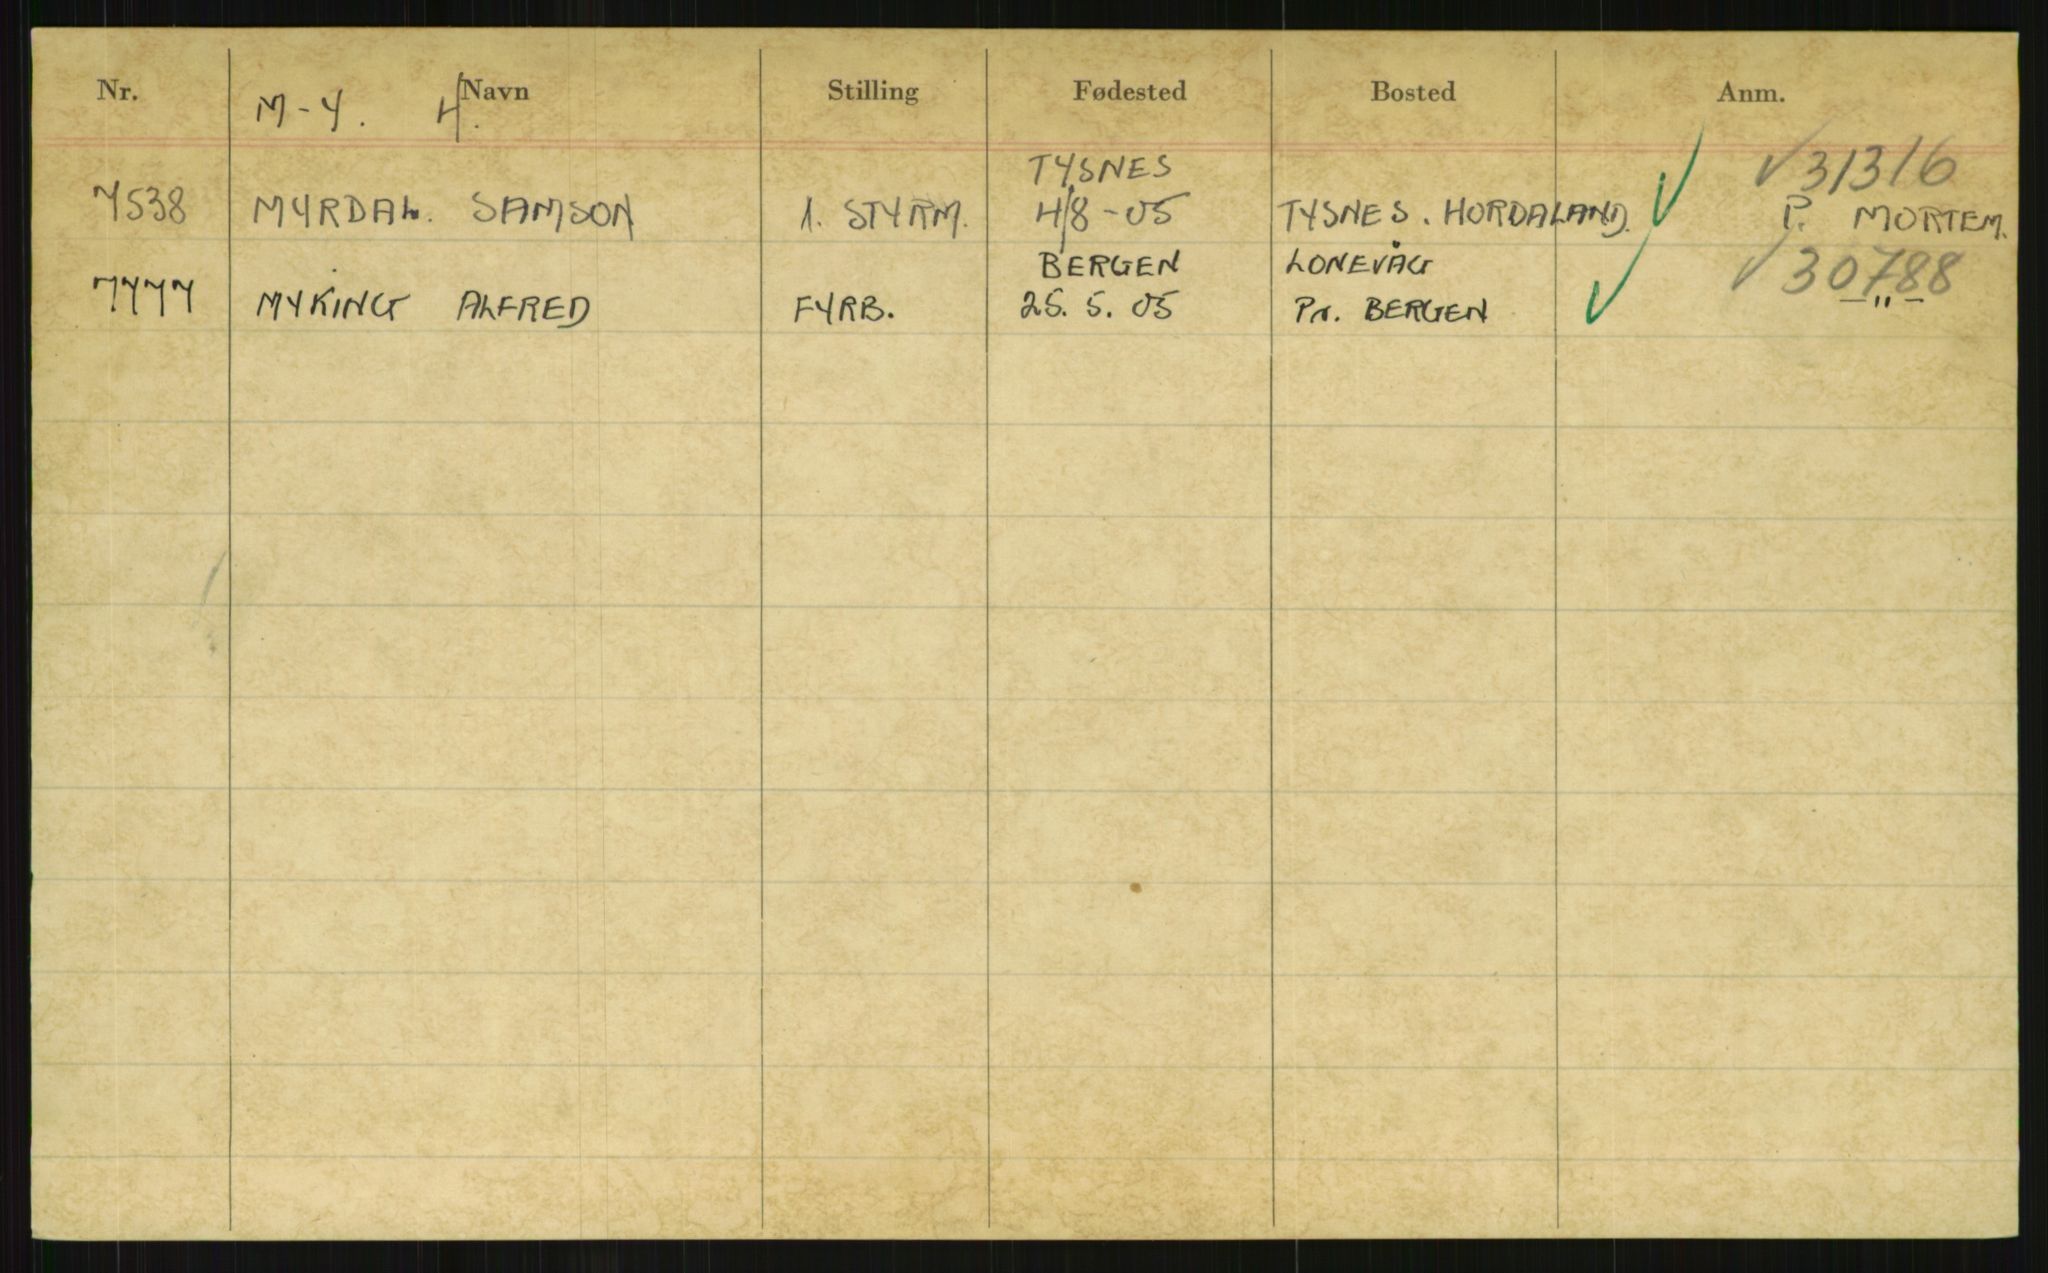 Nr. Navn Stilling Fødested Bosted Anm.
M-Y. 4.
TYSNES ✓31316
7538 MYRDAL. SAMSON 1. STYRM. 4/8-05 TYSNES. HORDALAND. ✓ P. MORTEM.
BERGEN LONEVÅG ✓30788
7777 MYKING ALFRED FYRB. 25. 5. 05 Pr. BERGEN ✓ — " —